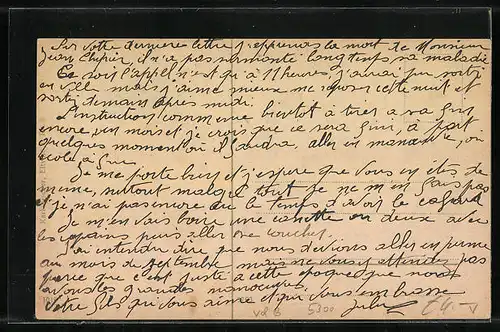 Sur votre dernière lettre j'apprends la mort de Monsieur
Jean, il n'a pas surmonté longtemps sa maladie
Ce soir l'appel n'est qu'à 11 heures, j'aurai pu sortir
en ville mais j'aime mieux me reposer cette nuit et
sortir demain après midi.
L'instruction commence bientôt à tirer à sa fin
encore un mois et je crois que ce sera fini, à part
quelques moments où il faudra aller en manœuvre, ou
école à feu.
Je me porte bien et j'espère que vous en êtes de
même, surtout malgré tout je ne m'en fais pas
et je n'ai pas encore eu le temps d'avoir le cafard
Je m'en vais boire une canette ou deux avec
les copains puis aller me coucher.
J'ai entendu dire que nous devions aller en perme
au mois de septembre mais ne vous y attendez pas
parce que c'est juste à cette époque que nous
avons les grandes manœuvres.
Votre fils qui vous aime et qui vous embrasse
Jules
5300